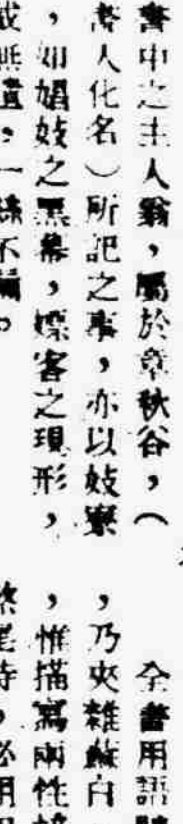 書中之主人翁，屬於章秋谷，（
書人化名）所記之事，亦以妓寮
，如娼妓之黑幕，嫖客之現形，
無遺，一絲不
全書用語
，乃夾雜蘇白
，惟描寫兩性